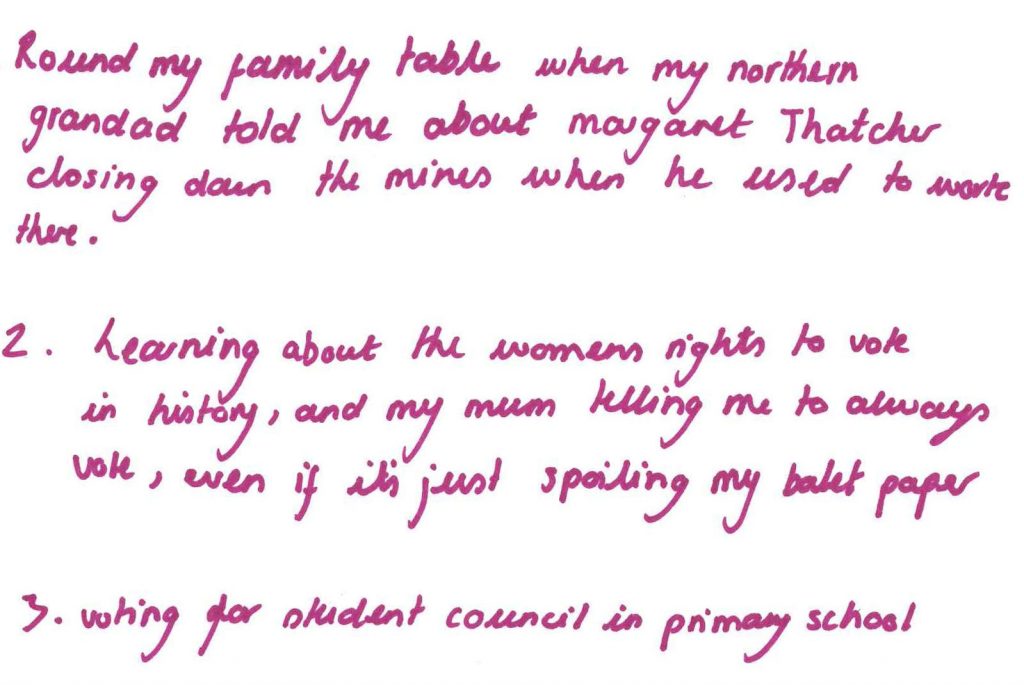 Round my family table when my northern
grandad told me about margaret Thatcher
closing down the mines when he used to work
there.
2. Learning about the womens rights to vote
in history, and my mum telling me to always
vote, even if it's just spoiling my balet paper
3. voting for student council in primary school